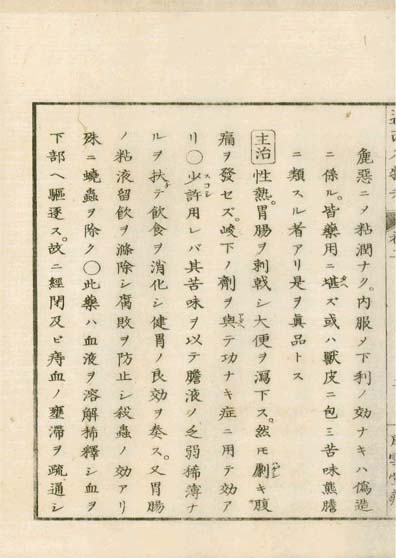 麁惡ニノ粘潤ナク。内服メ下利ノ効ナキハ偽造
ニ係ル。皆藥用ニ堪ズ或ハ獣皮ニ包ミ苦味熊膽
ニ類スル者アリ是ヲ眞品トス
主治 性熱。胃腸ヲ刺戟シ大便ヲ瀉下ス。然モ劇キ腹
痛ヲ發セズ。峻下ノ劑ヲ與テ功ナキ症ニ用テ効ア
リ〇少許用レバ其苦味ヲ以テ膽液ノ乏弱稀薄ナ
ルヲ扶テ飲食ヲ消化シ健胃ノ良効ヲ奏ス。又胃腸
ノ粘液留飲ヲ滌除シ腐敗ヲ防止シ殺蟲ノ効アリ
殊ニ蟯蟲ヲ除ク〇此藥ハ血液ヲ溶解稀釋シ血ヲ
下部ヘ驅逐ス。故ニ經閉及ビ痔血ノ壅滞ヲ疏通シ